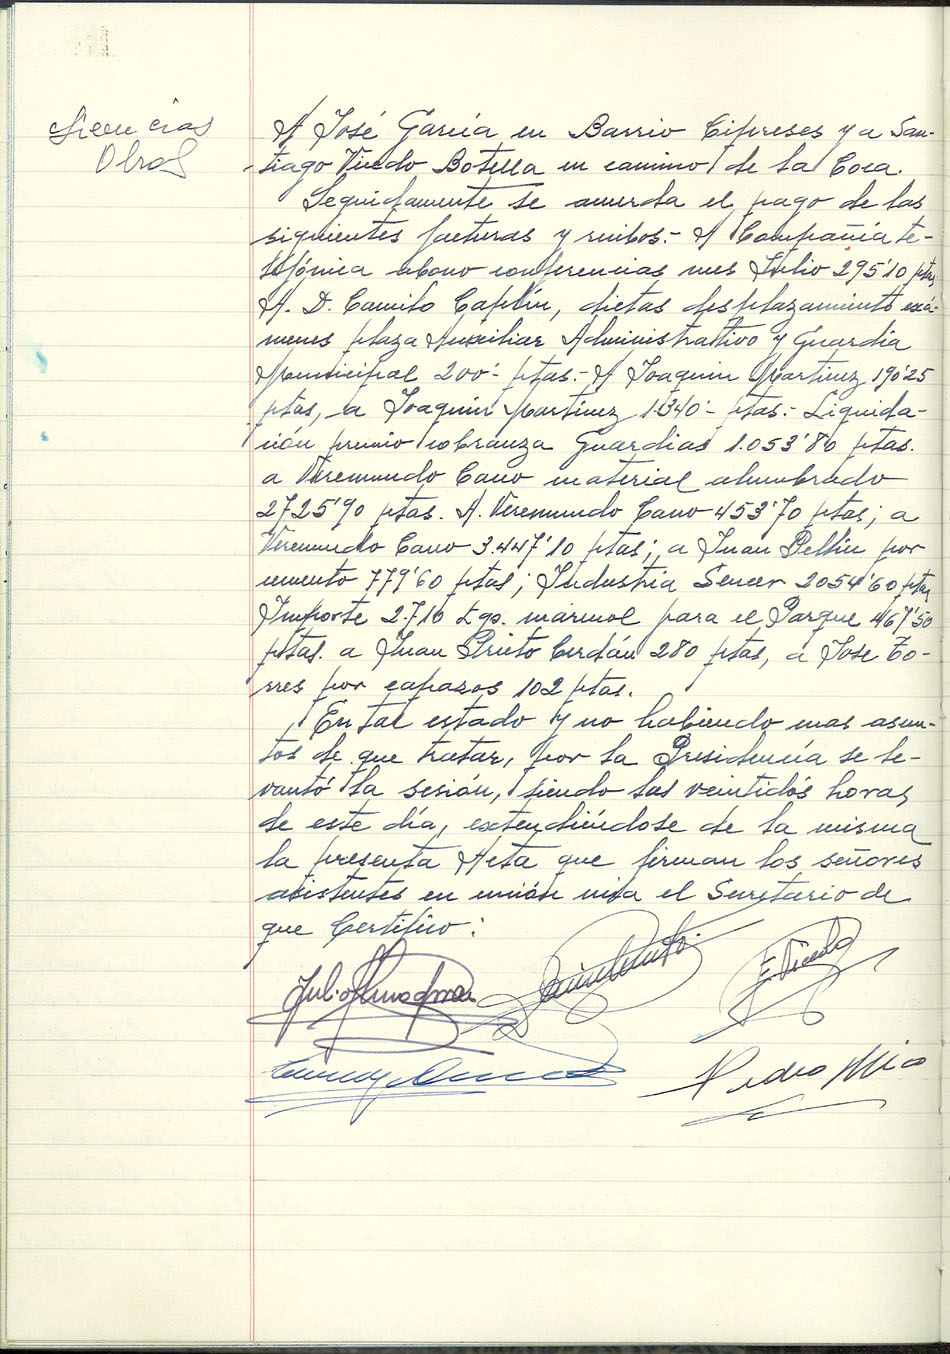 Licencias
Obras
A José García en Barrio Cipreses y a San-
tiago Vicedo Botella en camino de la Coca.
Seguidamente se acuerda el pago de las
siguientes facturas y recibos:- A Compañía te-
lefónica abono conferencias mes Julio 295'10 ptas
A. D. Camilo Caplín, dietas desplazamiento exá-
menes plaza Auxiliar Administrativo y Guardia
Municipal 200'- ptas.- A Joaquín Martinez 190'25
ptas, a Joaquín Martinez 1.340'- ptas.- Liquida-
ción premio cobranza Guardias 1.053'80 ptas.
a Veremundo Cano material alumbrado
2725'90 ptas. A. Veremundo Cano 453'70 ptas; a
Veremundo Cano 3.447'10 ptas; a Juan Bellin por
cemento 779'60 ptas; Industria Sencer 2054'60 ptas
Importe 2.710 Kgs. mármol para el Parque 467'50
ptas. a Juan Prieto Cerdán 280 ptas, a Jose To-
rres por capazos 102 ptas.
En tal estado y no habiendo mas asun-
tos de que tratar, por la Presidencia se le-
vantó la sesión, siendo las veintidós horas
de este día, extendiéndose de la misma
la presenta Acta que firman los señores
asistentes en unión el Secretario de
que Certifico:
E. Vicedo
Pedro Mira